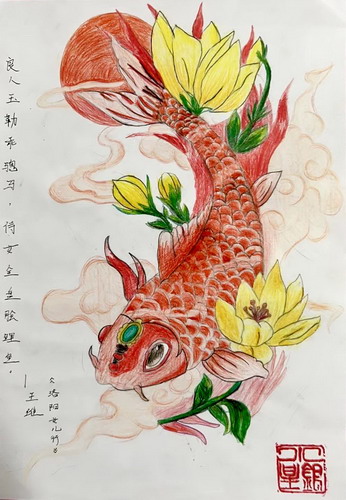 良人玉勒乘骢马，侍女金盘脍鲤鱼。
—王维
《洛阳女儿行》